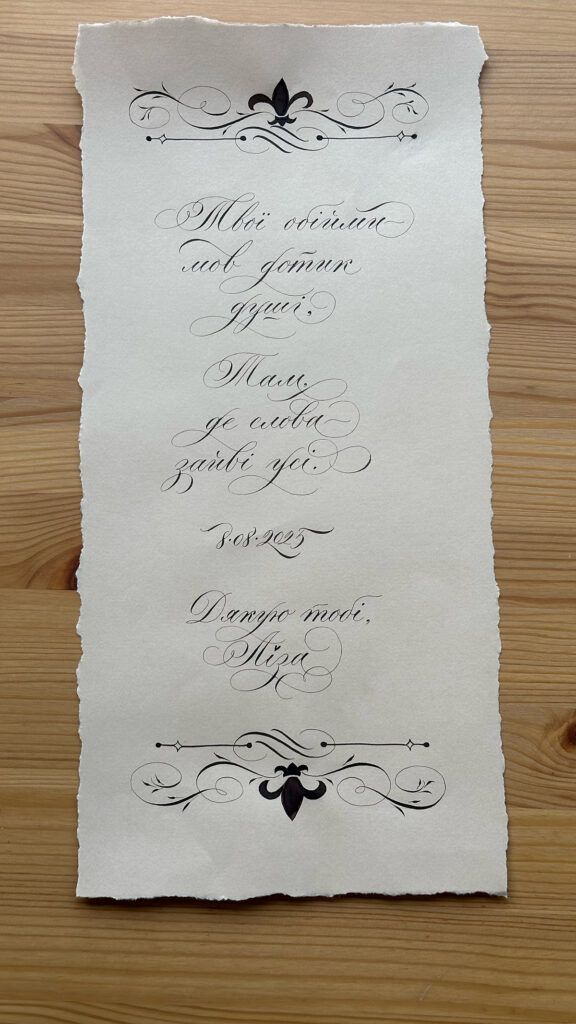 Твої обійми
мов дотик
душі,
Там,
де слова
зайві усі.
8·08·2025
Дякую тобі,
Ліза